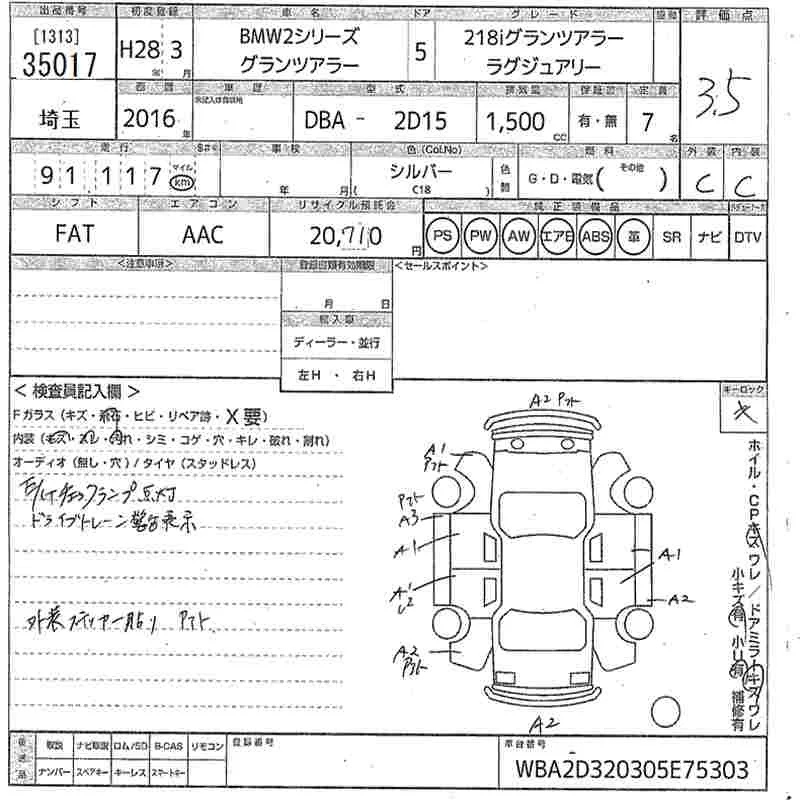 出品番号 初度登録 車名 ドア グレード 評価点
[1313]
35017
H28 3
年 月
BMW2シリーズ
グランツアラー
5
218iグランツアラー
ラグジュアリー
3.5
西暦 車歴 型式 排気量 保証書 定員
埼玉
2016 年
DBA - 2D15
1,500 CC
有・無
7 名
走行 車検 色(Col.No) 燃料 外装 内装
91,117 マイル km
年 月
シルバー
( C18 )
色替
G・D・電気( その他 )
C C
シフト エアコン リサイクル預託金 純正装備品
FAT
AAC
20,710 円
PS PW AW エアB ABS 革 SR ナビ DTV
<注意事項> 登録書類有効期限 <セールスポイント>
月 日
輸入車
ディーラー・並行
左H ・ 右H
< 検査員記入欄 >
キーロック
Fガラス (キズ・飛石・ヒビ・リペア跡・X要)
内装 (キズ・スレ・汚れ・シミ・コゲ・穴・キレ・破れ・割れ)
オーディオ (無し・穴) / タイヤ (スタッドレス)
ドライブトレーン警告表示
外装ステッカー貼り アト
A2 アト
A1
アト
アト
A3
A1
A1
A1
U2
A2
A2
アト
A2
ホイル・CPキズ ワレ / ドアミラーキズワレ
小キズ有 小U有 補修有
後送品
取説 ナビ取説 ロム/SD B-CAS リモコン
ナンバー スペアキー キーレス スマートキー
登録番号
車台番号
WBA2D320305E75303